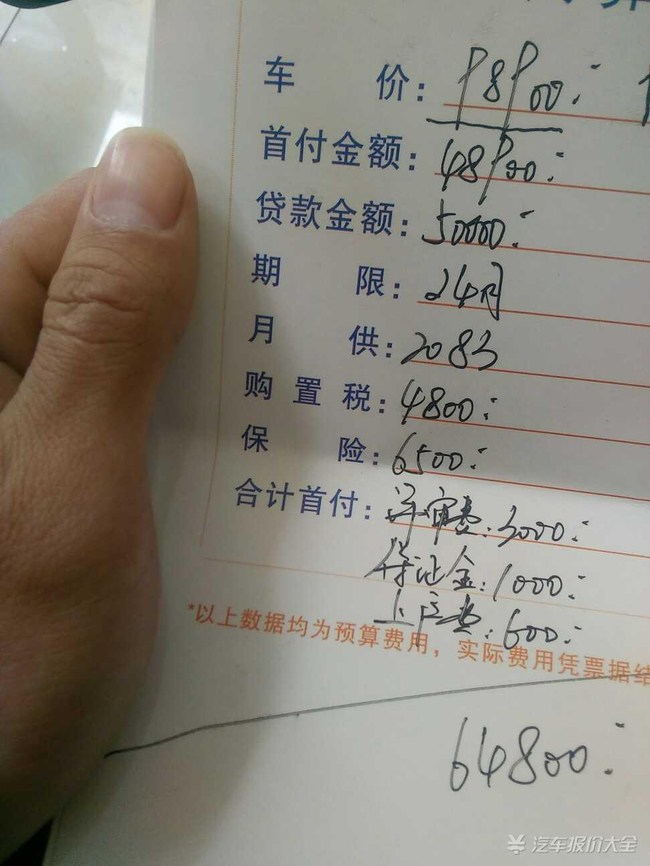 车 价：98900
首付金额：48900
贷款金额：50000
期 限：24月
月 供：2083
购 置 税：4800
保 险：6500
合计首付：评审费：3000
保证金：1000
上户费：600
*以上数据均为预算费用，实际费用凭票据结
64800
汽车报价大全